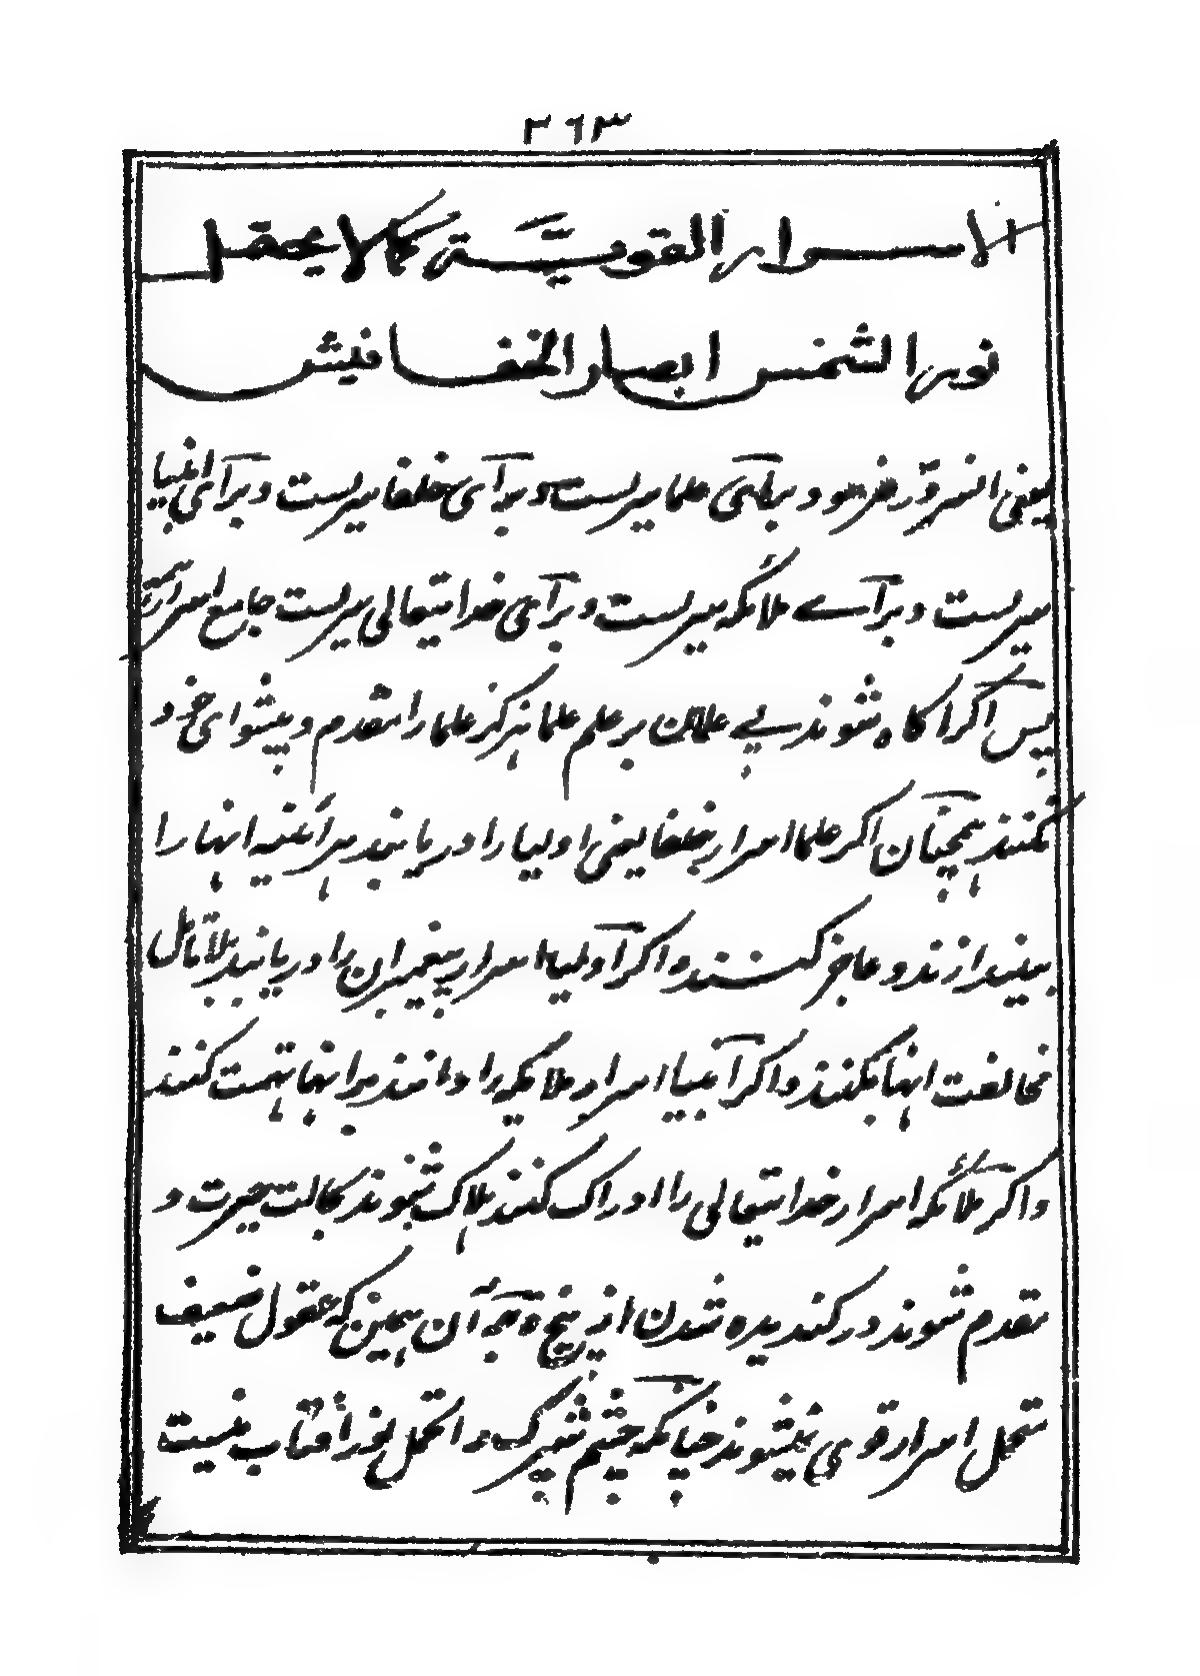 ٣٦٣
الاسرار القويّة كما لا يحتمل
نور الشمس ابصار الخفافيش
یعنی انسرور فرمود و برای علما سریست و برای خلفا سریست و برای انبیا
سریست و برای ملائکه سریست و برای خدایتعالی سریست جامع اسرار
پس اگر آگاه شوند بر علم علما هرگز علما را مقدم و پیشوای خود
نکنند همچنان اگر علما اسرار خلفا یعنی اولیا را دریابند هرآئینه انها را
بیندازند و عاجز کنند و اگر اولیا اسرار پیغمبران را دریابند بلا تأمل
مخالفت انها بکنند و اگر انبیا اسرار ملایکه را دانند بر انها تهمت کنند
و اگر ملائکه اسرار خدایتعالی را ادراک کنند هلاک شوند بحالت حیرت و
مقدم شوند در کندیده شدن از بیخ آن همین که عقول ضعیف
متحمل اسرار قوی نمیشوند چنانکه چشم شپرک و تحمل نور آفتاب نیست